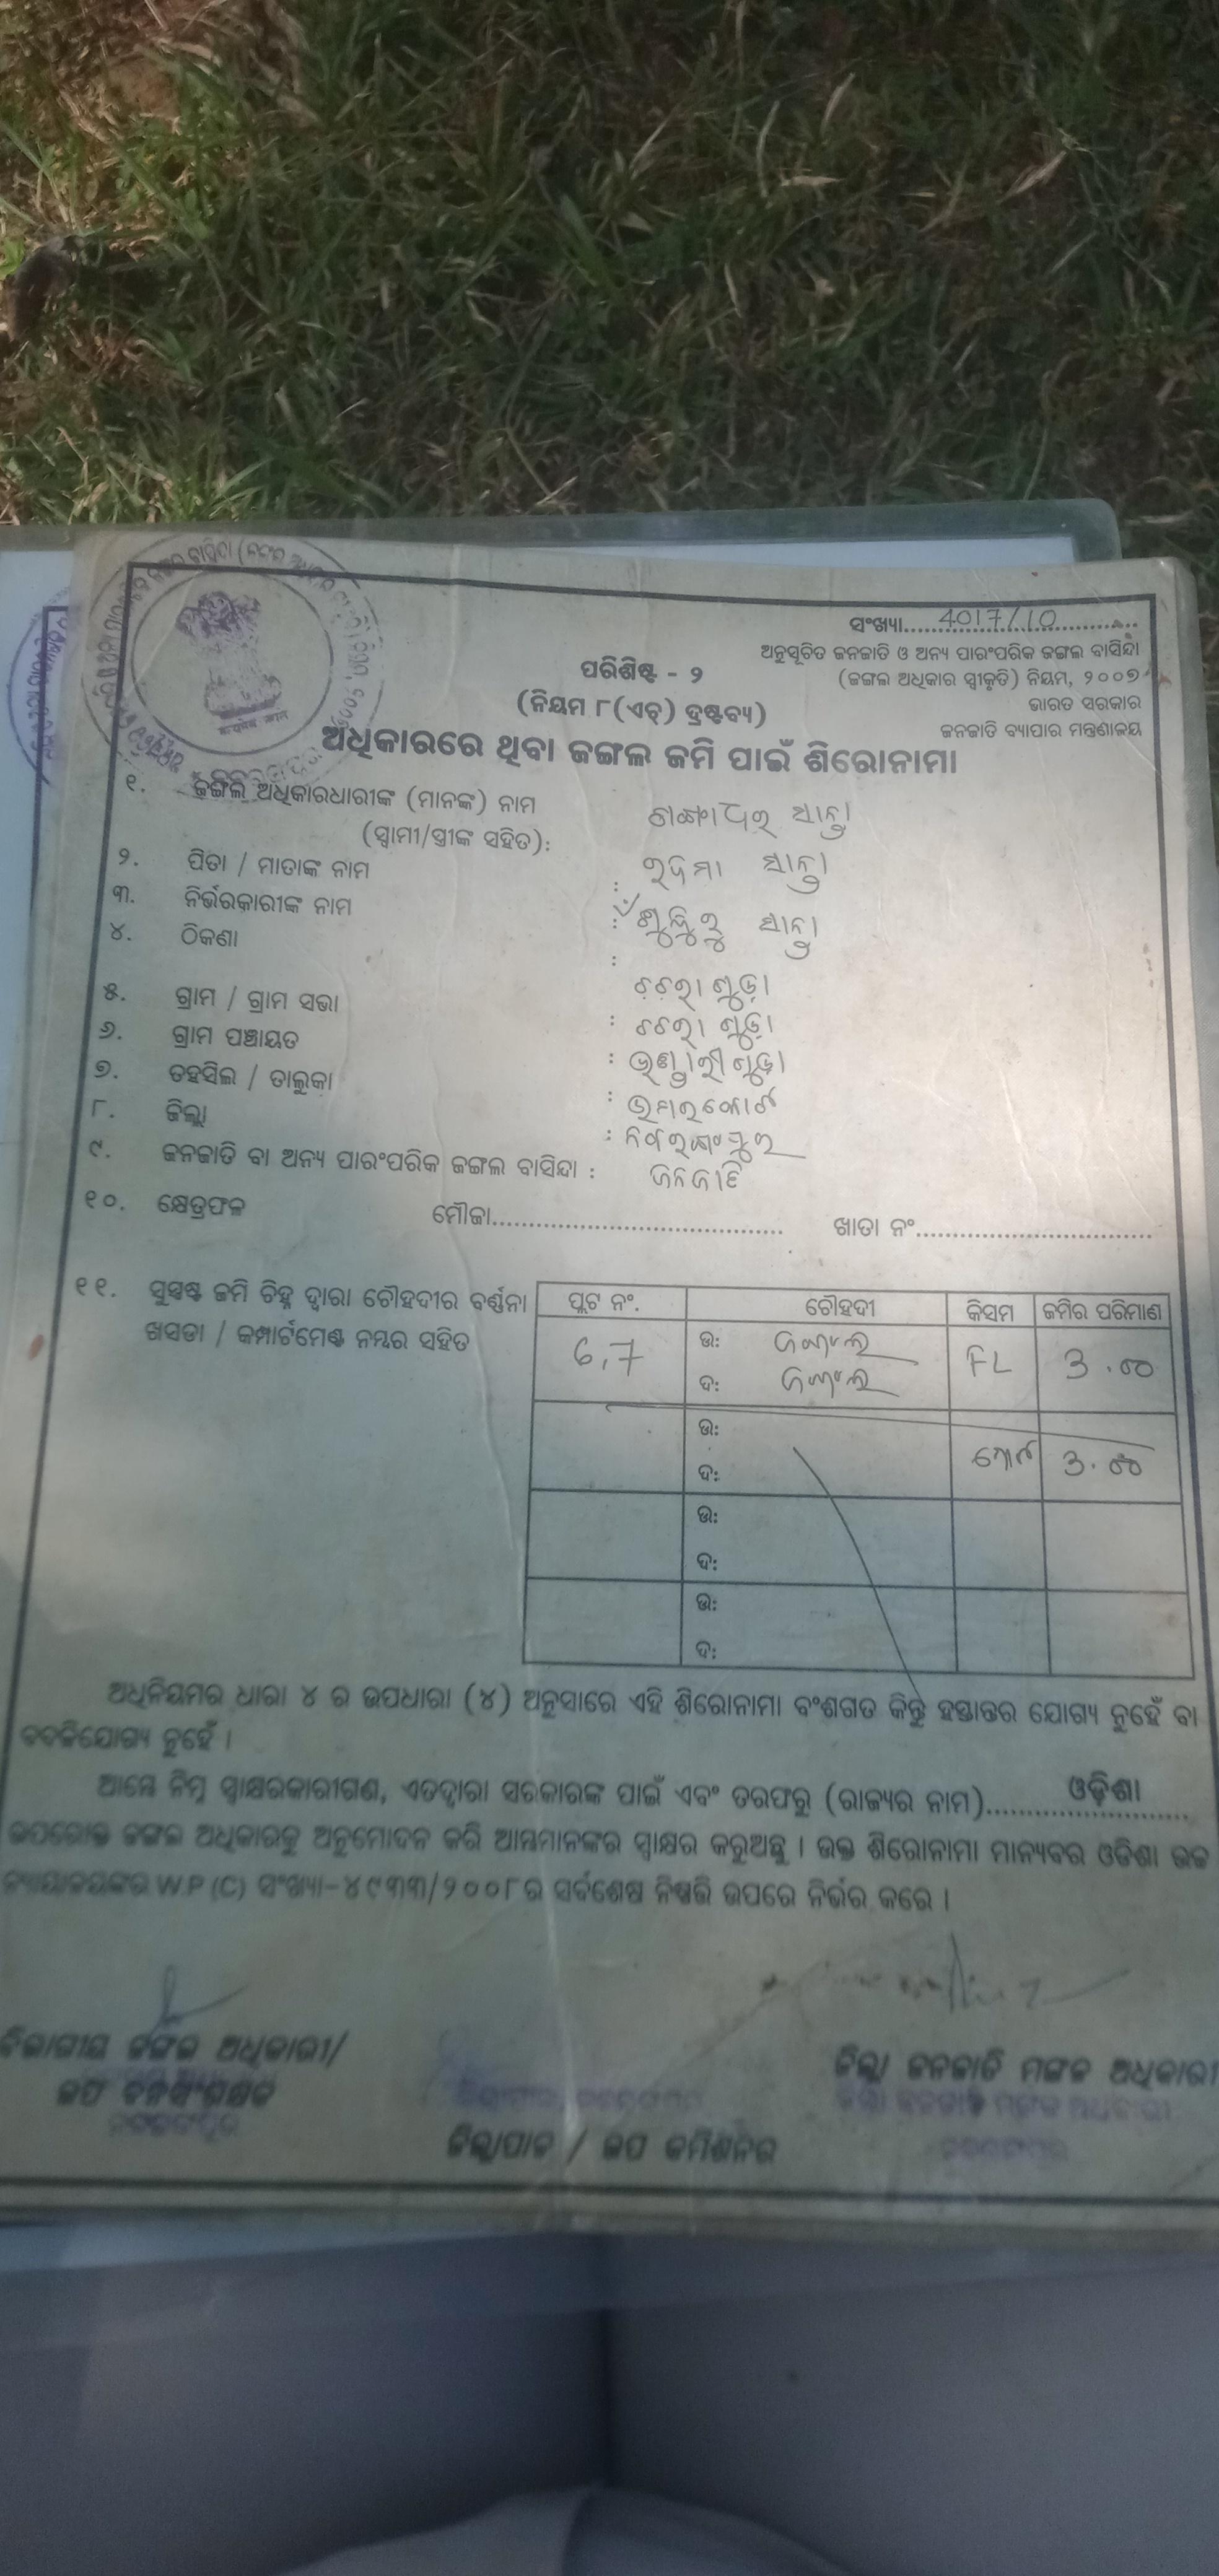 ସଂଖ୍ୟା.....4017/10.....
ଅନୁସୂଚିତ ଜନଜାତି ଓ ଅନ୍ୟ ପାରଂପରିକ ଜଙ୍ଗଲ ବାସିନ୍ଦା
(ଜଙ୍ଗଲ ଅଧିକାର ସ୍ୱୀକୃତି) ନିୟମ, ୨୦୦୭
ଭାରତ ସରକାର
ଜନଜାତି ବ୍ୟାପାର ମନ୍ତ୍ରଣାଳୟ
ପରିଶିଷ୍ଟ - ୨
(ନିୟମ ୮(ଏଚ୍) ଦ୍ରଷ୍ଟବ୍ୟ)
ଅଧିକାରରେ ଥିବା ଜଙ୍ଗଲ ଜମି ପାଇଁ ଶିରୋନାମା
୧. ଜଙ୍ଗଲ ଅଧିକାରଧାରୀଙ୍କ (ମାନଙ୍କ) ନାମ
(ସ୍ୱାମୀ/ସ୍ତ୍ରୀଙ୍କ ସହିତ): ଗଙ୍ଗାଧର ସାନ୍ତା
୨. ପିତା / ମାତାଙ୍କ ନାମ : ସାନ୍ତା
୩. ନିର୍ଭରକାରୀଙ୍କ ନାମ : ସାନ୍ତା
୪. ଠିକଣା :
୫. ଗ୍ରାମ / ଗ୍ରାମ ସଭା :
୬. ଗ୍ରାମ ପଞ୍ଚାୟତ : ଭଣ୍ଡାରୀଗୁଡ଼ା
୭. ତହସିଲ / ତାଲୁକା : ଉମରକୋଟ
୮. ଜିଲ୍ଲା : ନବରଙ୍ଗପୁର
୯. ଜନଜାତି ବା ଅନ୍ୟ ପାରଂପରିକ ଜଙ୍ଗଲ ବାସିନ୍ଦା : ଜନଜାତି
୧୦. କ୍ଷେତ୍ରଫଳ ମୌଜା..................... ଖାତା ନଂ.....................
୧୧. ସୁସ୍ପଷ୍ଟ ଜମି ଚିହ୍ନ ଦ୍ୱାରା ଚୌହଦୀର ବର୍ଣ୍ଣନା
ଖସଡା / କମ୍ପାର୍ଟମେଣ୍ଟ ନମ୍ବର ସହିତ
ପ୍ଲଟ ନଂ. ଚୌହଦୀ କିସମ ଜମିର ପରିମାଣ
6,7 ଉ: ଜଙ୍ଗଲ FL 3.00
ଦ: ଜଙ୍ଗଲ
ଉ: ମୋଟ 3.00
ଦ:
ଉ:
ଦ:
ଉ:
ଦ:
ଅଧିନିୟମର ଧାରା ୪ ର ଉପଧାରା (୪) ଅନୁସାରେ ଏହି ଶିରୋନାମା ବଂଶଗତ କିନ୍ତୁ ହସ୍ତାନ୍ତର ଯୋଗ୍ୟ ନୁହେଁ ବା
ବଦଳିଯୋଗ୍ୟ ନୁହେଁ ।
ଆମ୍ଭେ ନିମ୍ନ ସ୍ୱାକ୍ଷରକାରୀଗଣ, ଏତଦ୍ୱାରା ସରକାରଙ୍କ ପାଇଁ ଏବଂ ତରଫରୁ (ରାଜ୍ୟର ନାମ).....ଓଡ଼ିଶା.....
ଉପରୋକ୍ତ ଜଙ୍ଗଲ ଅଧିକାରକୁ ଅନୁମୋଦନ କରି ଆମ୍ଭମାନଙ୍କର ସ୍ୱାକ୍ଷର କରୁଅଛୁ । ଉକ୍ତ ଶିରୋନାମା ମାନ୍ୟବର ଓଡିଶା ଉଚ୍ଚ
ନ୍ୟାୟାଳୟଙ୍କର W.P (C) ସଂଖ୍ୟା-୪୯୩୩/୨୦୦୮ର ସର୍ବଶେଷ ନିଷ୍ପତ୍ତି ଉପରେ ନିର୍ଭର କରେ ।
ବିଭାଗୀୟ ଜଙ୍ଗଲ ଅଧିକାରୀ/
ଉପ ବନସଂରକ୍ଷକ
ଜିଲ୍ଲାପାଳ / ଉପ କମିଶନର
ଜିଲ୍ଲା ଜନଜାତି ମଙ୍ଗଳ ଅଧିକାରୀ